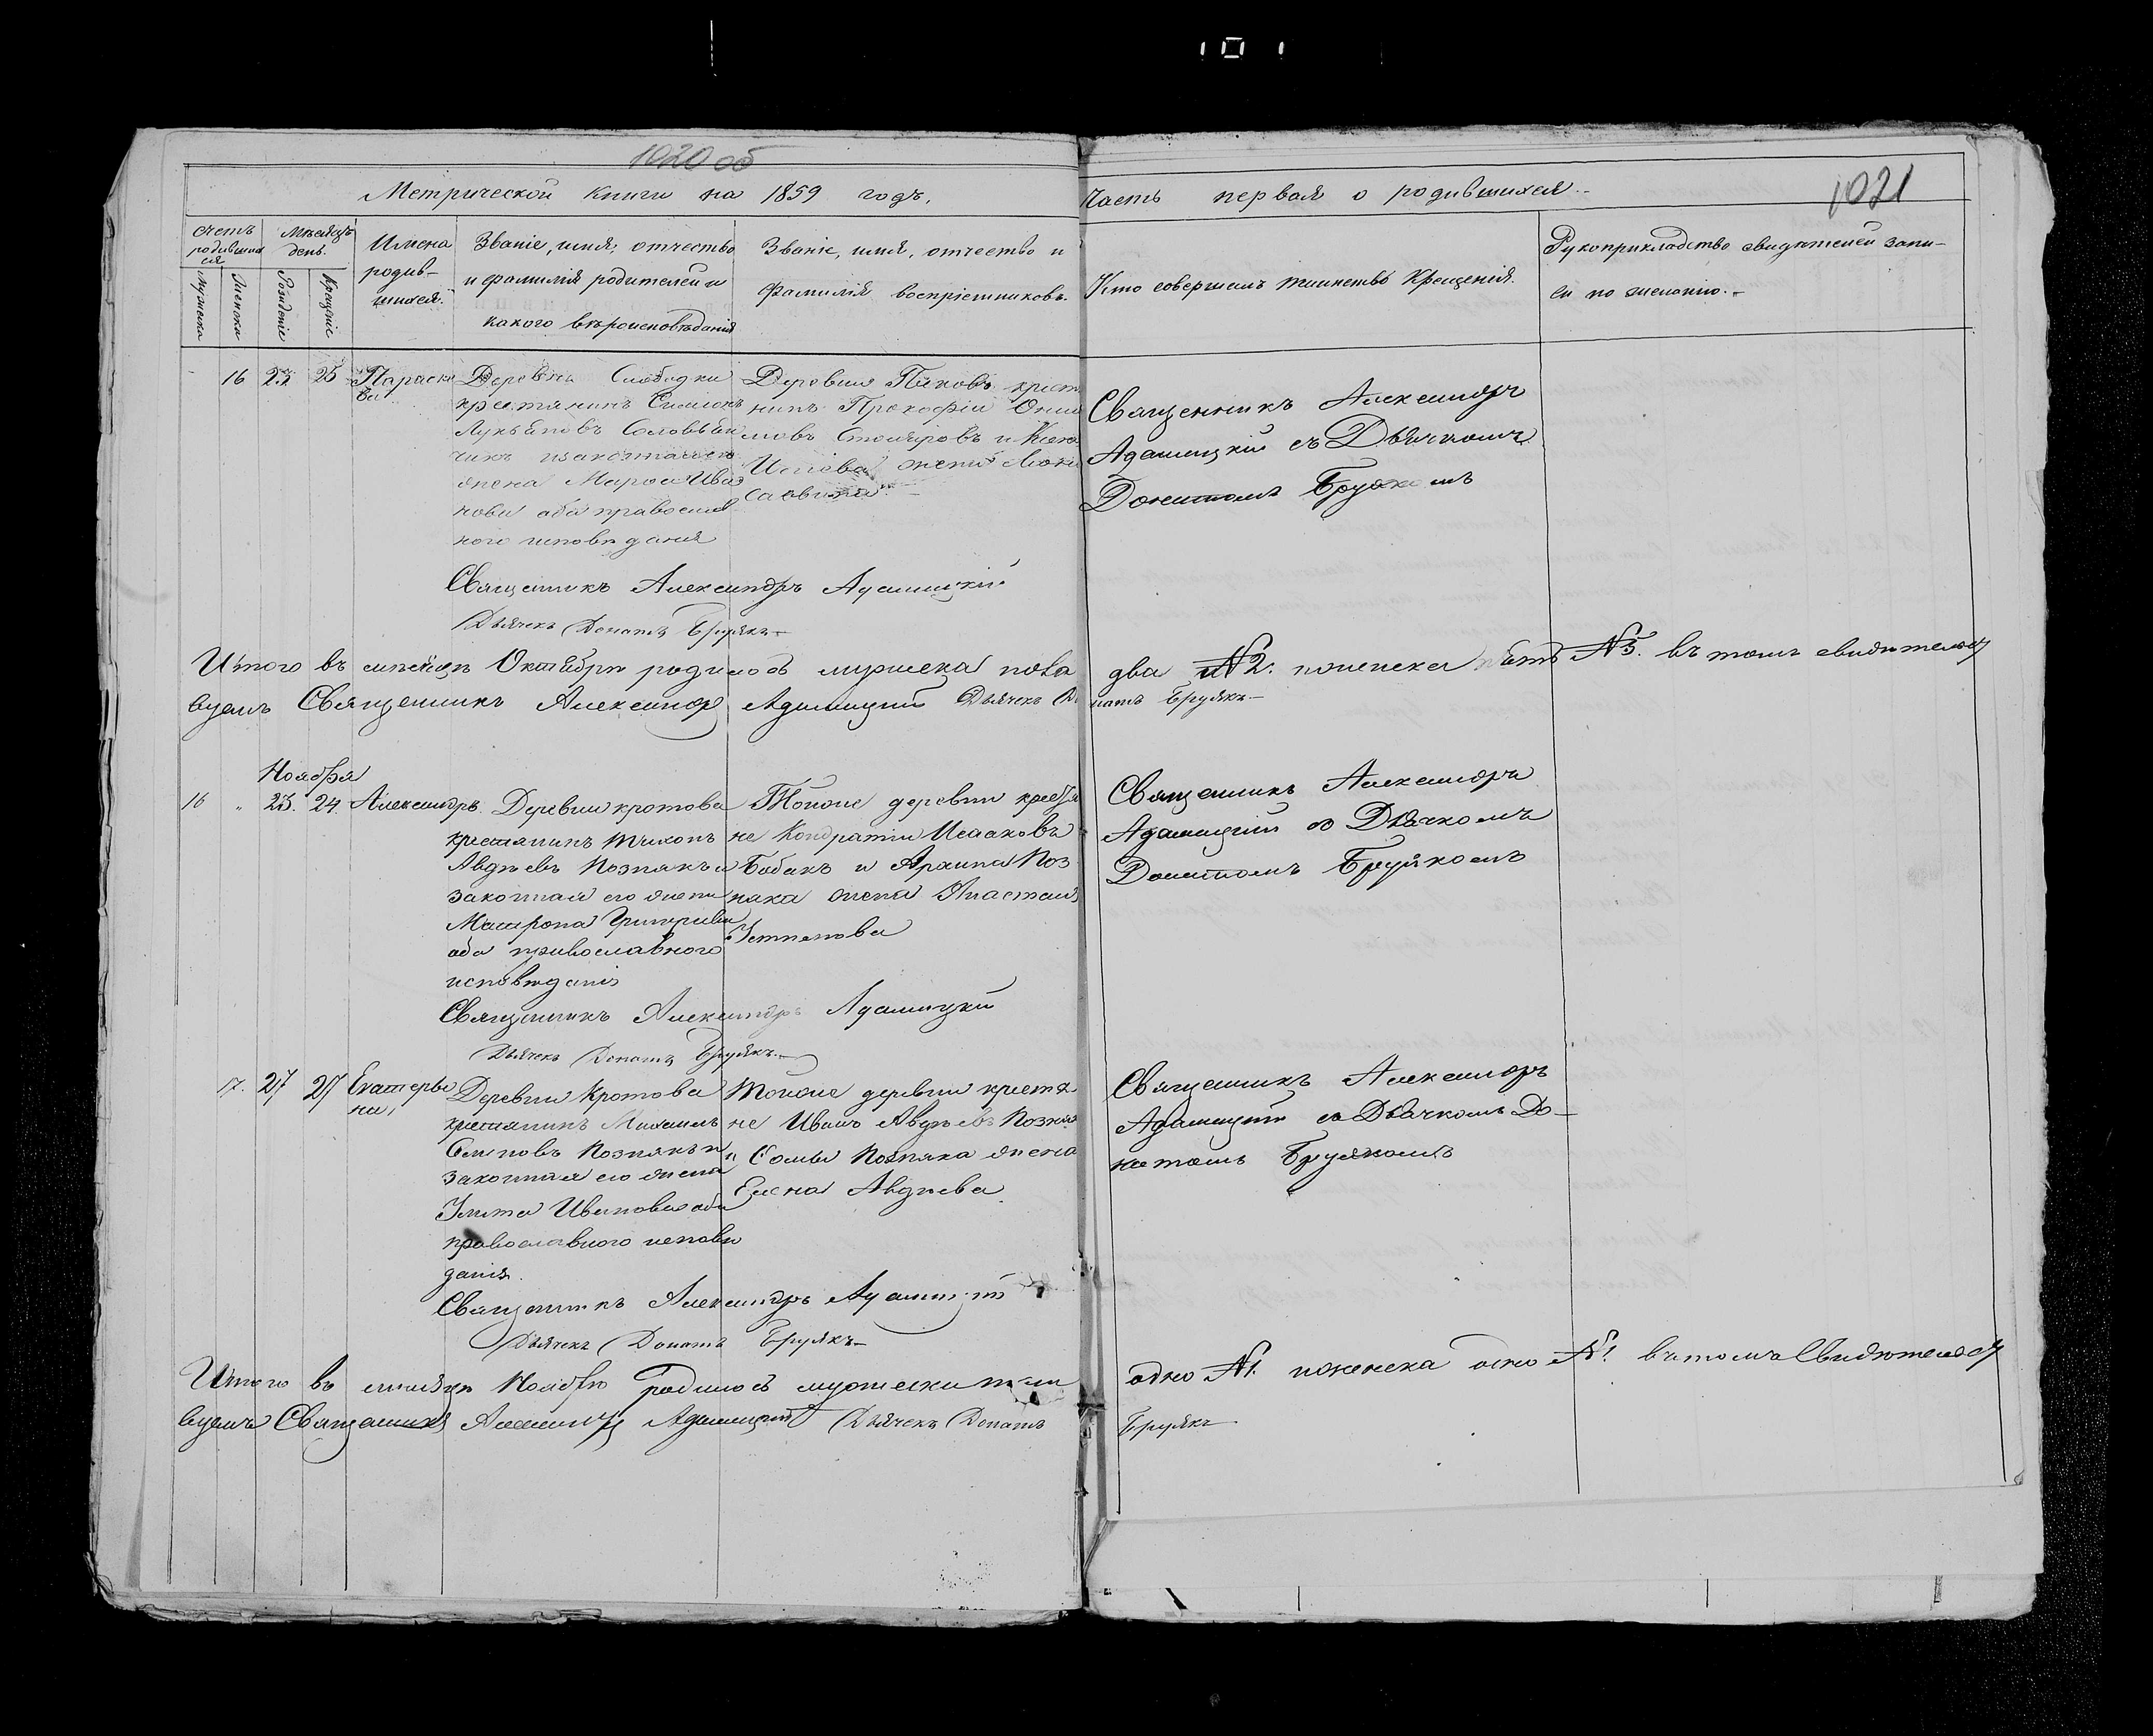 1020 об
Метрической книги на 1859 годъ,
Часть первая о родившихся.
1021
счетъ родившихся
Мѣсяцъ день.
Имена родив-шихся.
Званіе, имя, отчество и фамилія родителей и какого вѣроисповѣданія
Званіе, имя, отчество и фамилія воспріемниковъ.
Кто совершалъ таинство Крещенія.
Рукоприкладство свидѣтелей запи-
си по желанію.
мужеска
женска
Рожденіе
Крещеніе
16 23 25 Параске
ва
Деревни Слободки
крестянинъ
Лукьяновъ
жена Марѳа Ива
нова оба православ
ного исповѣданія
Деревни крест
нинъ Прокофій
и
жена
Савина
Священникъ Александръ
Адамицкій съ Дьячкомъ
Донатомъ Брулкомъ
Священникъ Александръ Адамицкій
Дьячекъ Донатъ
Итого въ мѣсяцѣ Октябрѣ родилось мужеска пола
два №2. и женска №3. въ томъ свидѣтельст
вуемъ Священникъ Александръ Адамицкій Дьячекъ До
натъ
Ноября
16 " 23. 24. Александръ
Деревни Кротова
крестянинъ Тихонъ
Авдѣевъ Познякъ и
законная его жена
Матрона
оба православного
исповѣданія
Тойже деревни крестя
не Кондратій Исааковъ
Бобакъ и Архипа Поз
няка жена Анастасія
Степанова
Священникъ Александръ
Адамицкій съ Дьячкомъ
Донатомъ
Священникъ Александръ Адамицкій
Дьячекъ Донатъ
17. 27 29 Екатери
на
Деревни Кротова
крестянинъ Михаилъ
Семеновъ Познякъ и
законная его жена
Ивановна оба
православного исповѣ
данія.
Тойже деревни крестя
не Иванъ Авдѣевъ Позняк
и Сомы Позняка жена
Елена Авдѣева
Священникъ Александръ
Адамицкій съ Дьячкомъ До-
натомъ
Священникъ Александръ Адамицкій
Дьячекъ Донатъ
Итого въ мѣсяцѣ Ноябрѣ родилось мужеска пола
одно №1. и женска одно №1. въ томъ свидѣтельст
вуемъ Священникъ Александръ Адамицкій Дьячекъ Донатъ